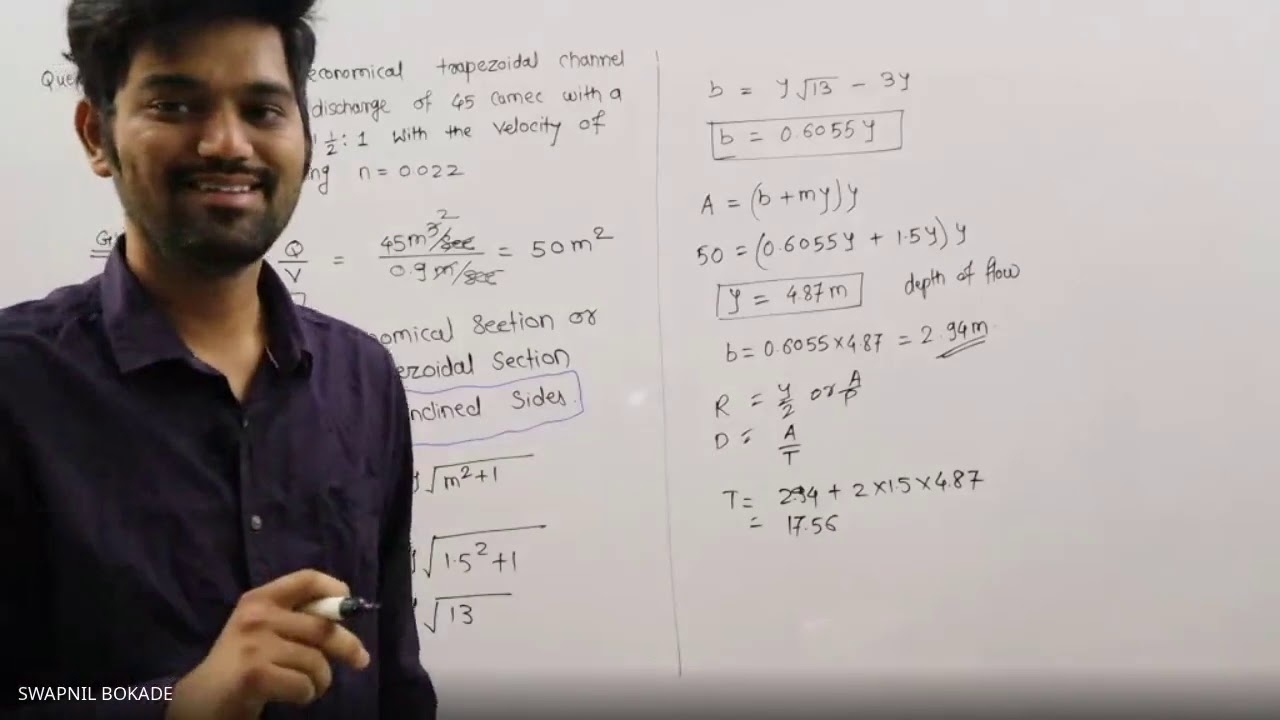 economical trapezoidal channel
discharge of 45 Cumec with a
1 1/2 : 1 With the Velocity of
n = 0.022
Q/V = 45 m³/sec / 0.9 m/sec = 50 m²
2
omical Section or
ezoidal Section
nclined Sides.
√m²+1
√1.5²+1
√13
b = y√13 - 3y
b = 0.6055 y
A = (b + my) y
50 = (0.6055y + 1.5y) y
y = 4.87 m depth of flow
b = 0.6055 × 4.87 = 2.94 m.
R = y/2 or A/P
D = A/T
T = 2.94 + 2 × 1.5 × 4.87
= 17.56
SWAPNIL BOKADE